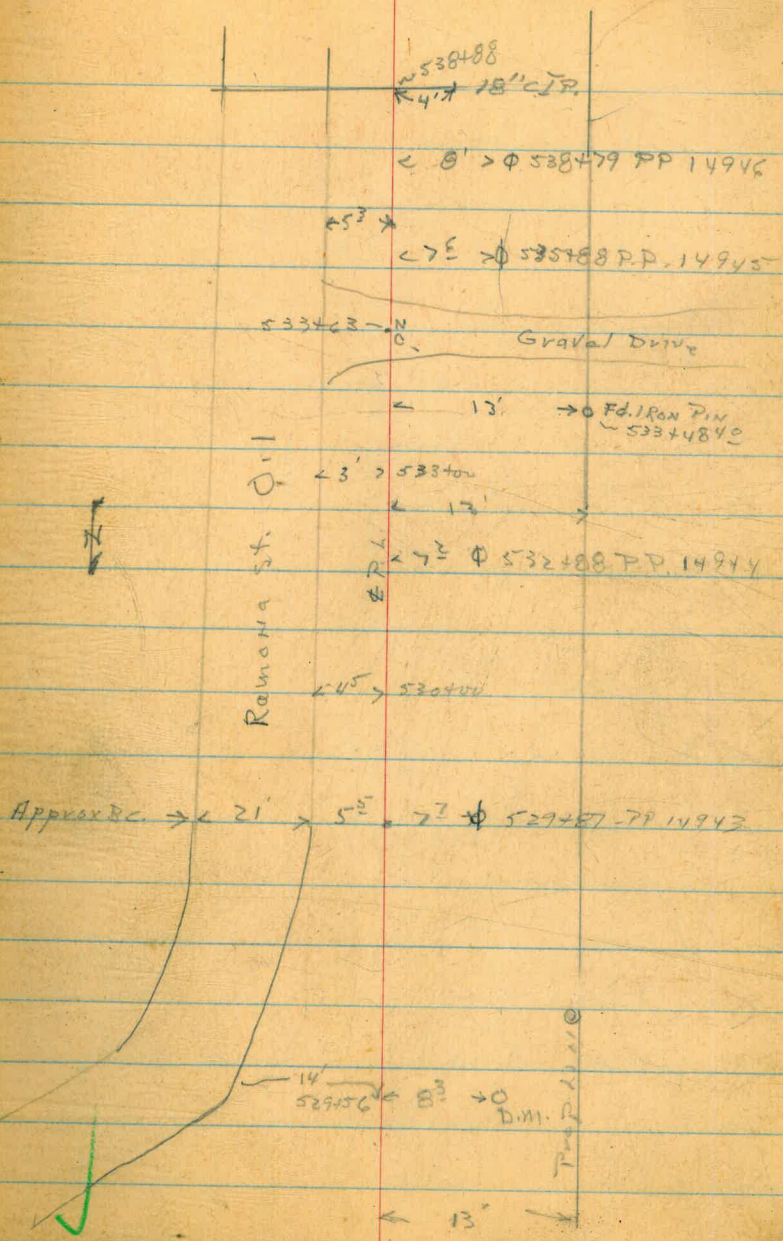 538+88
4' 18" C.I.P.
8' 538+79 PP 14946
5³
7⁶ 535+88 P.P. 14945
533+63
Graval Drive
13' Fd. IRON PIN
533+48⁴⁰
3' 533+00
13'
7² 532+88 P.P. 14944
Ramona St. Oil
4⁵ 530+00
Approx B.C. 21' 5⁵ 7² 529+87 PP 14943
14'
529+56 8³
Prop Line
13'